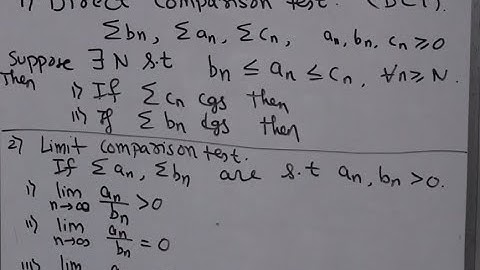 1) Direct Comparison test. (DCT).
Σbn, Σan, Σcn, an, bn, cn ≥ 0
Suppose ∃ N s.t bn ≤ an ≤ cn, ∀n ≥ N.
Then i) If Σcn cgs then
ii) If Σbn dgs then
2) Limit comparison test.
If Σan, Σbn are s.t an, bn > 0.
i) lim n→∞ an/bn > 0
ii) lim n→∞ an/bn = 0
iii) lim an